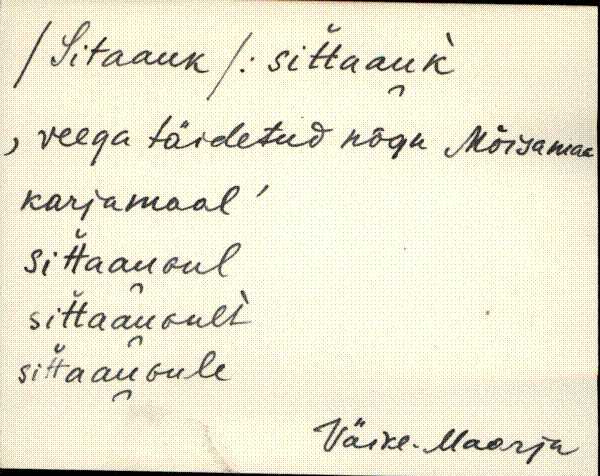 /Sitaauk/: sit̆taau̯k̀
, veega täidetud nõgu Mõisamaa
karjamaal '
sit̆taau̯oul
sit̆taau̯oult̀
sit̆taau̯oule
Väike-Maarja